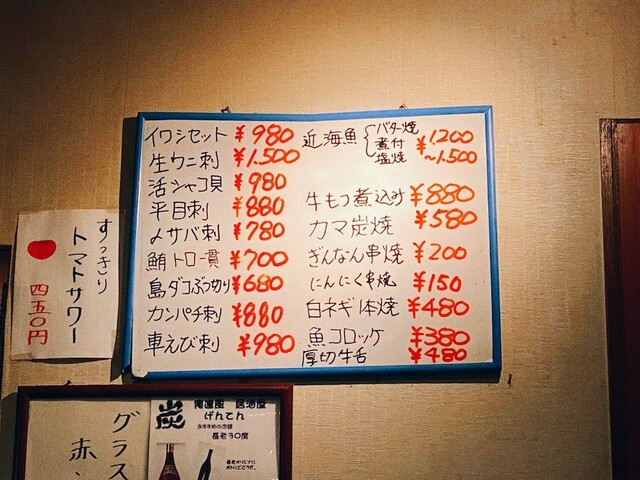 イワシセット ¥980
生ウニ刺 ¥1.500
活シャコ貝 ¥980
平目刺 ¥880
〆サバ刺 ¥780
鮪トロ一貫 ¥700
島ダコぶつ切り ¥680
カンパチ刺 ¥880
車えび刺 ¥980
近海魚 バター焼 煮付 塩焼 ¥1.200～1.500
牛もつ煮込み ¥880
カマ炭焼 ¥580
ぎんなん串焼 ¥200
にんにく串焼 ¥150
白ネギ1本焼 ¥480
魚コロッケ ¥380
厚切牛舌 ¥480
すっきり
トマトサワー
四五〇円
グラス
赤
炭
俺流風 居酒屋
げんてん
おすすめの泡盛
長老30度